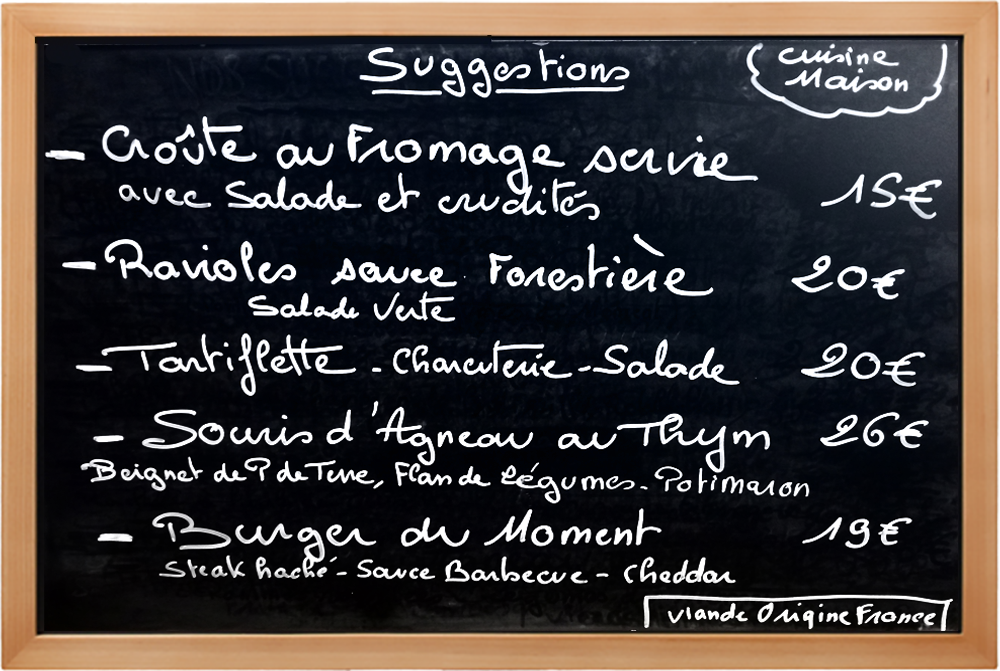 Suggestions
cuisine
Maison
- Croûte au Fromage servie
avec Salade et crudités 15€
- Ravioles sauce Forestière 20€
Salade Verte
- Tartiflette - Charcuterie - Salade 20€
- Souris d'Agneau au Thym 26€
Beignet de P de Terre, Flan de Légumes - Potimaron
- Burger du Moment 19€
Steak haché - Sauce Barbecue - Cheddar
viande Origine France